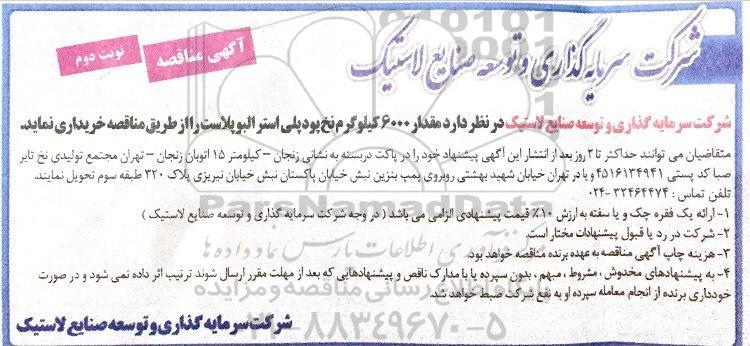 شرکت سرمایه گذاری و توسعه صنایع لاستیک
آگهی مناقصه
نوبت دوم
شرکت سرمایه گذاری و توسعه صنایع لاستیک در نظر دارد مقدار ۶۰۰۰ کیلوگرم نخ پود پلی استر البو پلاست را از طریق مناقصه خریداری نماید.
متقاضیان می توانند حداکثر تا ۲ روز بعد از انتشار این آگهی پیشنهاد خود را در پاکت دربسته به نشانی زنجان – کیلومتر ۱۵ اتوبان زنجان – تهران مجتمع تولیدی نخ تایر
صبا کد پستی ۴۵۱۶۱۳۴۹۴۱ و یا در تهران خیابان شهید بهشتی روبروی پمپ بنزین نبش خیابان پاکستان نبش خیابان تبریزی پلاک ۳۲۰ طبقه سوم تحویل نمایند.
تلفن تماس : ۳۲۴۶۴۴۷۴-۰۲۴
۱- ارائه یک فقره چک و یا سفته به ارزش ۱۰٪ قیمت پیشنهادی الزامی می باشد ( در وجه شرکت سرمایه گذاری و توسعه صنایع لاستیک )
۲- شرکت در رد یا قبول پیشنهادات مختار است.
۳- هزینه چاپ آگهی مناقصه به عهده برنده مناقصه خواهد بود.
۴- به پیشنهادهای مخدوش ، مشروط ، مبهم ، بدون سپرده یا با مدارک ناقص و پیشنهادهایی که بعد از مهلت مقرر ارسال شوند ترتیب اثر داده نمی شود و در صورت
خودداری برنده از انجام معامله سپرده او به نفع شرکت ضبط خواهد شد.
شرکت سرمایه گذاری و توسعه صنایع لاستیک
ParsNamadData
فرآوری اطلاعات پارس نماد داده ها
پایگاه اطلاع رسانی مناقصه و مزایده
۰۲۱-۸۸۳۴۹۶۷۰-۵